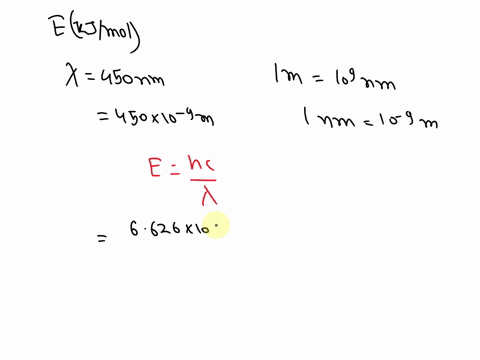 E(kJ/mol)
λ = 450nm
1m = 10⁹ nm
= 450×10⁻⁹m
1 nm = 10⁻⁹ m
E = hc/λ
= 6.626×10